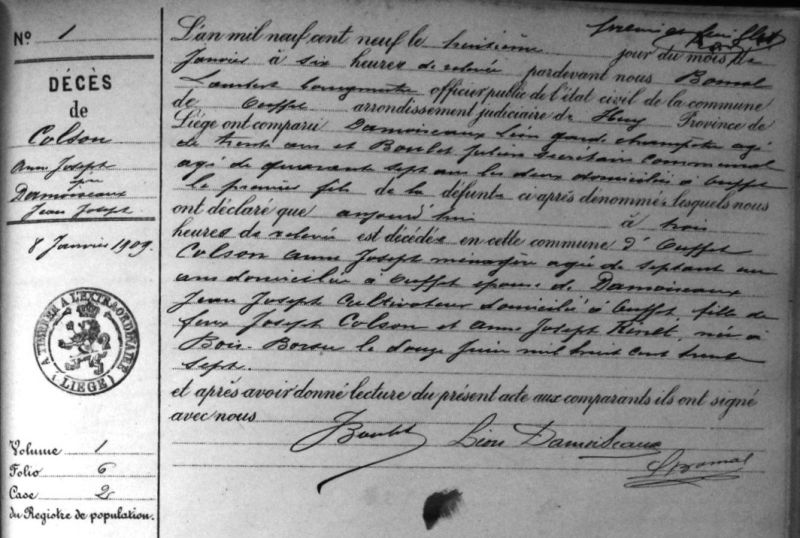 N° 1
DÉCÈS
de
Colson
Anne Josèph
Damoiseaux
Jean Joseph
8 Janvier 1909.
A TIMBRER A L'EXTRAORDINAIRE
(LIÈGE)
Volume 1
Folio 6
Case 2
du Registre de population.
premier feuillet
L'an mil neuf cent neuf le huitième jour du mois de
Janvier à six heures de relevée pardevant nous Bomal
Lambert bourgmestre officier public de l'état civil de la commune
de Ouffet arrondissement judiciaire de Huy Province de
Liége ont comparu Damoiseaux Léon garde champêtre agé
de trente ans et Boulet Julien secrétaire communal
agé de quarante sept ans les deux domiciliés à Ouffet
le premier fils de la défunte ci après dénommé lesquels nous
ont déclaré que aujourd'hui à trois
heures de relevée est décédée en cette commune d'Ouffet
Colson Anne Joseph ménagère agée de septante un
ans domiciliée à Ouffet épouse de Damoiseaux
Jean Joseph Cultivateur domicilié à Ouffet, fille de
feux Joseph Colson et Anne Joseph née à
Bois-Borsu le douze Juin mil huit cent trente
sept.
et après avoir donné lecture du présent acte aux comparants ils ont signé
avec nous
JBoulet Léon Damoiseaux
LBomal